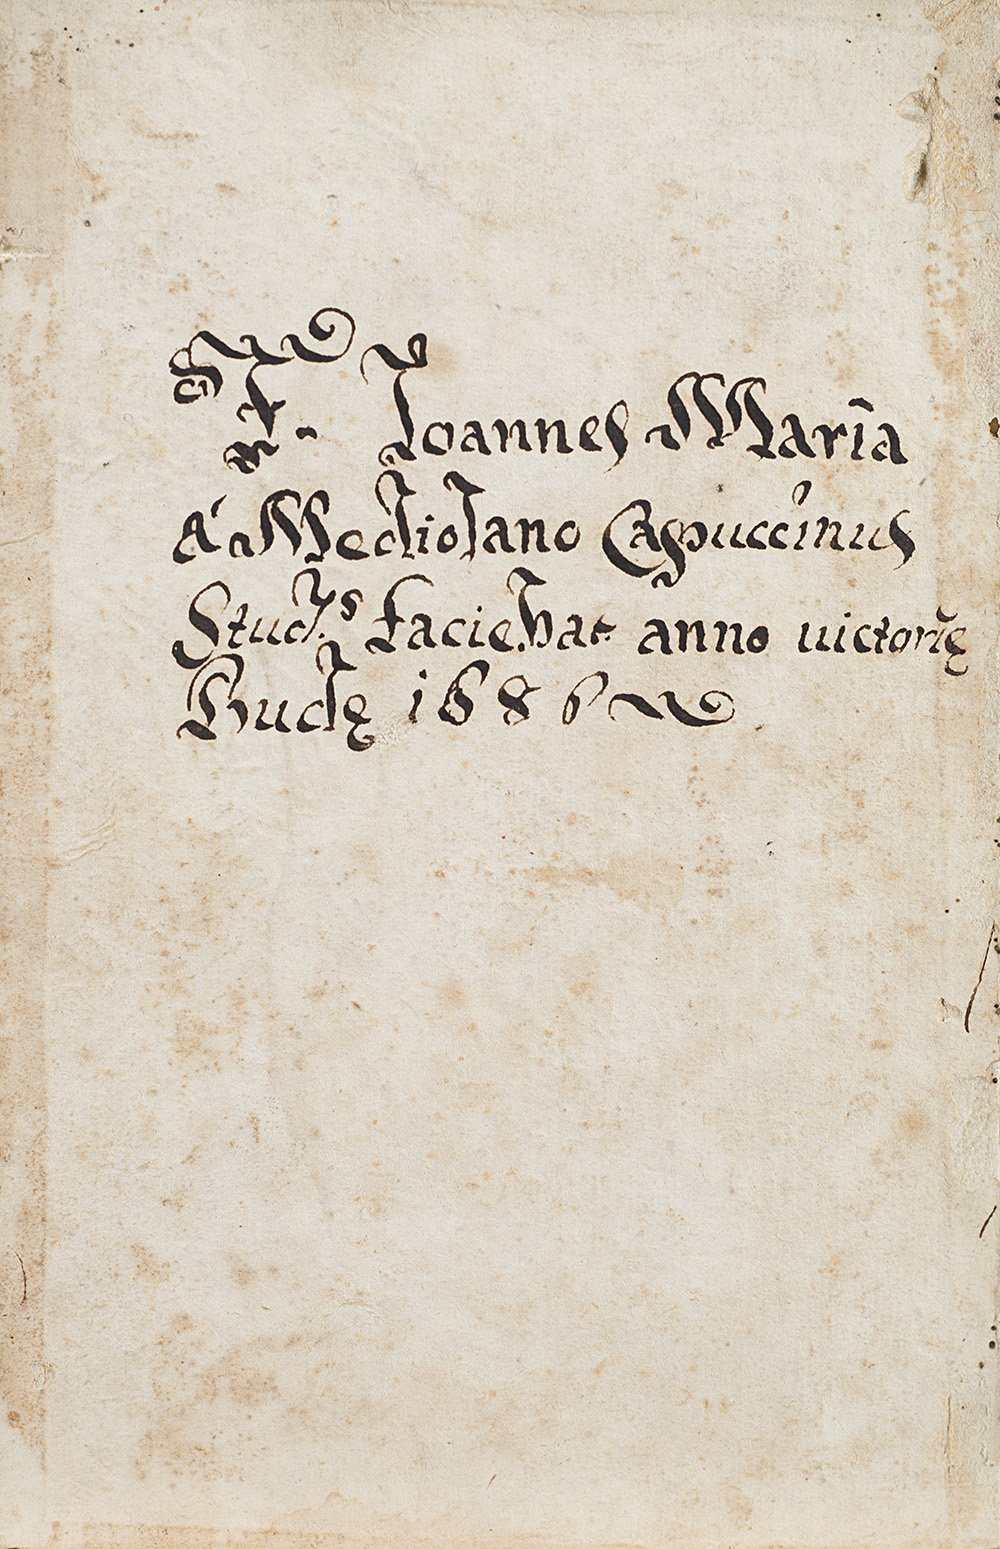 Fr. Ioannes Maria
á Mediolano Capuccinus
Stud.s faciebat anno uictorię
Budę 1686